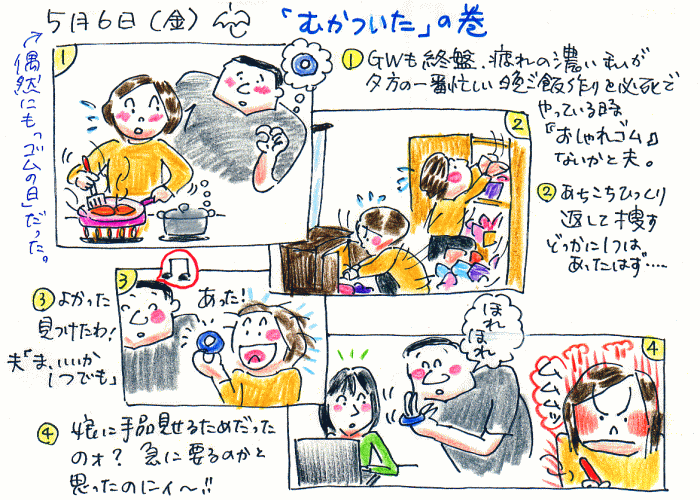 5月6日(金) 「むかついた」の巻
↗偶然にも「ゴムの日」だった。
1
① GWも終盤、疲れの濃い私が
夕方の一番忙しい晩ご飯作りを必死で
やっている時
『おしゃれゴム』
ないかと夫。
2
② あちこちひっくり
返して捜す
どっかに1つは
あったはず……
3
あった!
③ よかった
見つけたわ!
夫「ま、いいか
1つでも」
ほれ
ほれ
4
ムムムッ
④ 娘に手品見せるためだった
のォ? 急に要るのかと
思ったのにィ〜!!